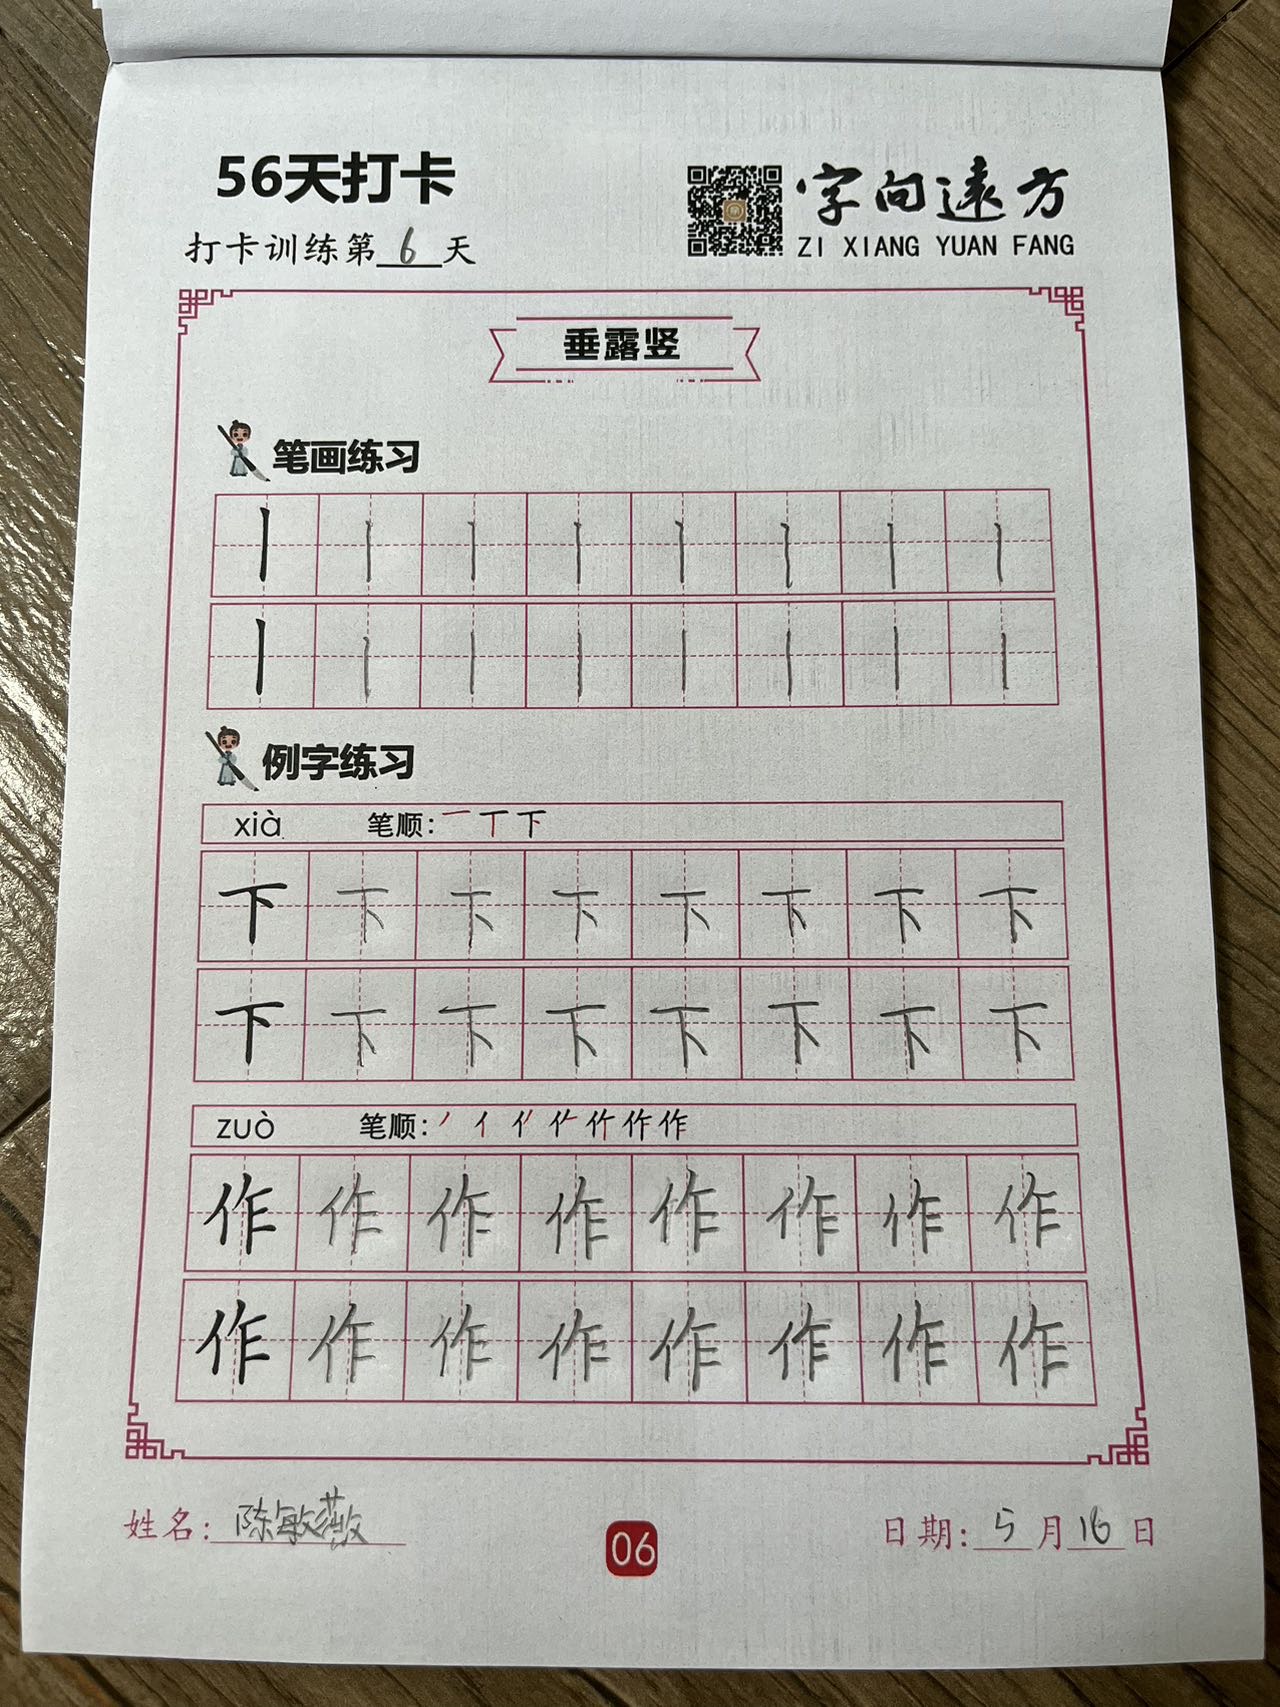 56天打卡
字向遠方
打卡训练第6天
ZI XIANG YUAN FANG
垂露竖
笔画练习
丨丨丨丨丨丨丨丨
丨丨丨丨丨丨丨丨
例字练习
xià 笔顺：一丅下
下下下下下下下下
下下下下下下下下
zuò 笔顺：丿亻作作
作作作作作作作作
作作作作作作作作
姓名：陈敏薇
06
日期：5月16日